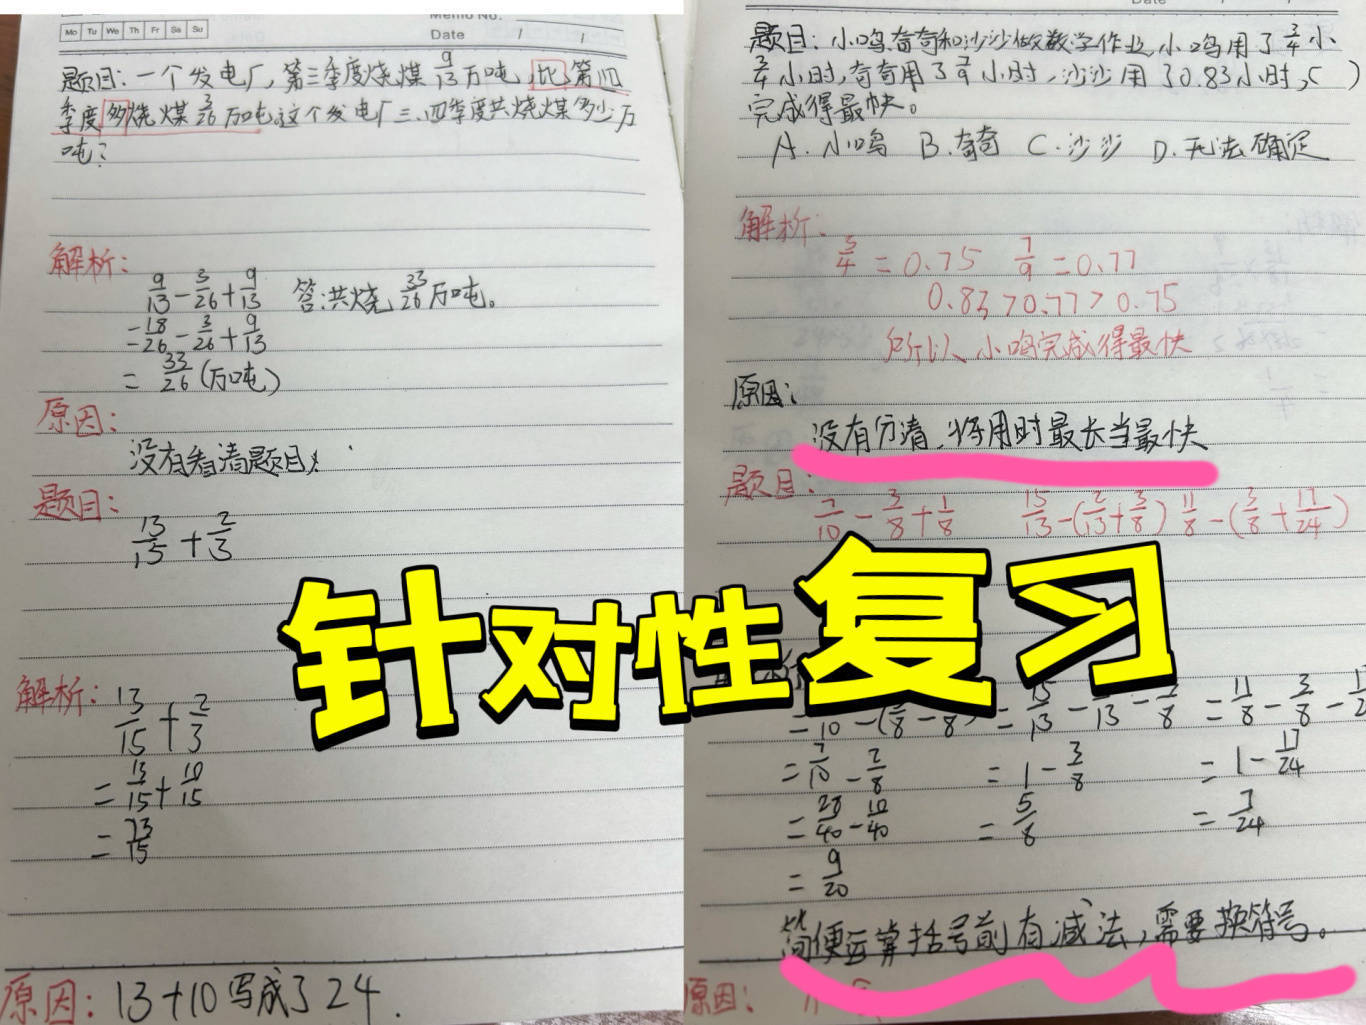 Mo Tu We Th Fr Sa Su
Memo No.
Date / /
题目:一个发电厂,第三季度烧煤9/13万吨,比第四
季度多烧煤3/26万吨,这个发电厂三、四季度共烧煤多少万
吨?
解析:
9/13-3/26+9/13 答:共烧33/26万吨。
-18/26-3/26+9/13
=33/26(万吨)
原因:
没有看清题目
题目:
13/15+2/3
解析:13/15+2/3
=13/15+10/15
=23/15
原因:13+10写成了24.
Date
题目:小鸣、奇奇和沙沙做数学作业,小鸣用了3/4小
3/4小时,奇奇用了7/9小时,沙沙用了0.83小时,( )
完成得最快。
A.小鸣 B.奇奇 C.沙沙 D.无法确定
解析:
3/4=0.75 7/9=0.77
0.83>0.77>0.75
所以,小鸣完成得最快
原因:
没有分清,将用时最长当最快
题目:
7/10-3/8+1/8 15/13-(2/13+3/8) 11/8-(3/8+17/24)
针对性复习
=7/10-2/8 =1-3/8 =1-17/24
=28/40-10/40 =5/8 =7/24
=9/20
简便运算括号前有减法,需要换符号。
原因: